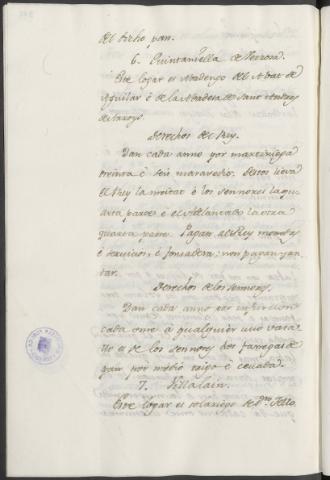 del dicho pan.
6. Quintaniella de Berzosa.
Este logar es Abadengo del Abat de
Aguilar é de la Abadesa de Sant Andres
de Arroyo.
Derechos del Rey.
Dan cada anno por martiniega
treinta é seis maravedis. destos lieva
el Rey la meitat é los sennores la qu-
arta parte é el Adelantado la otra
quarta parte. Pagan al Rey monedas
é servicios, é fonsadera: non pagan yan-
tar.
Derechos de los sennores.
Dan cada anno por infurcion
cada ome á qualquier que vala
de los sennores dos fanegas de
pan por medio trigo é cevada.
7. Villalain.
Este logar es solariego de Dn. Tello